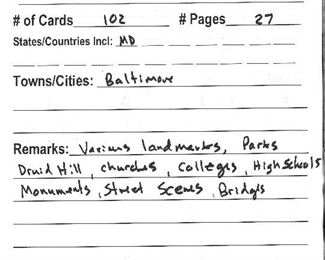 # of Cards 102 # Pages 27
States/Countries Incl: MD
Towns/Cities: Baltimore
Remarks: Various landmarks, Parks
Druid Hill, churches, Colleges, High Schools
Monuments, Street Scenes, Bridges